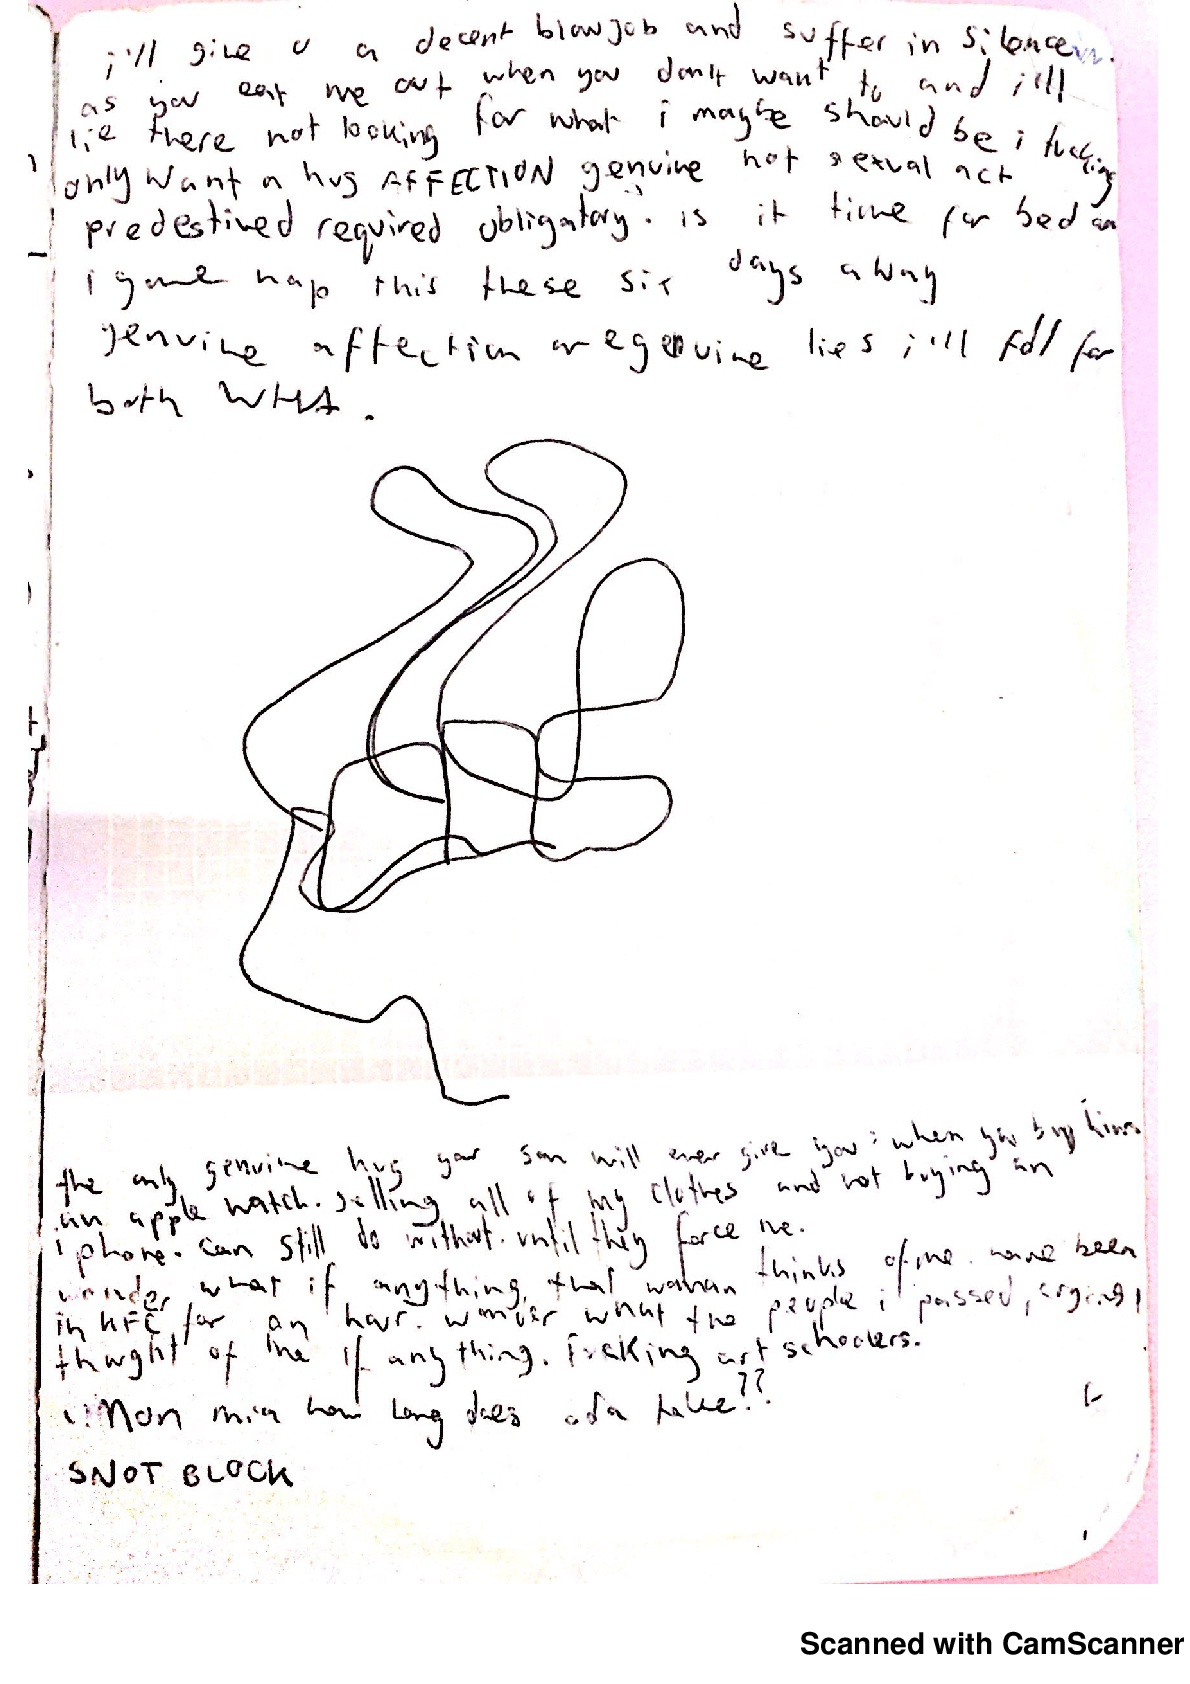 i'll give u a decent blowjob and suffer in silence
as you eat me out when you don't want to and i'll
lie there not looking for what i maybe should be i fucking
only want a hug AFFECTION genuine not sexual act
predestined required obligatory. is it time for bed
i nap this these six days away
genuine affection or egenuine lies i'll fall for
both WHA.
the only genuine hug your son will ever give you: when you buy him
an apple watch. selling all of my clothes and not buying an
iphone. can still do without. until they force me.
wonder what if anything, that woman thinks of me. have been
in KFC for an hour. wonder what the people i passed, crying,
thought of me if anything. Fucking art schoolers.
mia how long does take??
SNOT BLOCK
Scanned with CamScanner